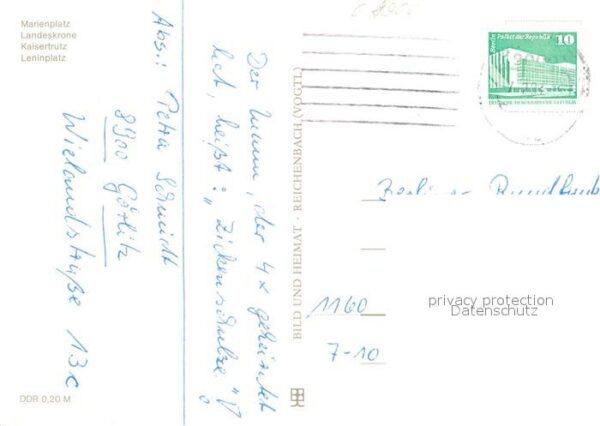 Marienplatz
Landeskrone
Kaisertrutz
Leninplatz
Abs.: Petra Schmidt
8900 Görlitz
Wielandstraße 13c
DDR 0,20 M
Der Mann, der 4x geheiratet
hat, heißt: „Zickenschulze"!
BILD UND HEIMAT · REICHENBACH (VOGTL.)
Berlin Palast der Republik
10
DEUTSCHE DEMOKRATISCHE REPUBLIK
Berliner Rundfunk
1160
7-10
privacy protection
Datenschutz